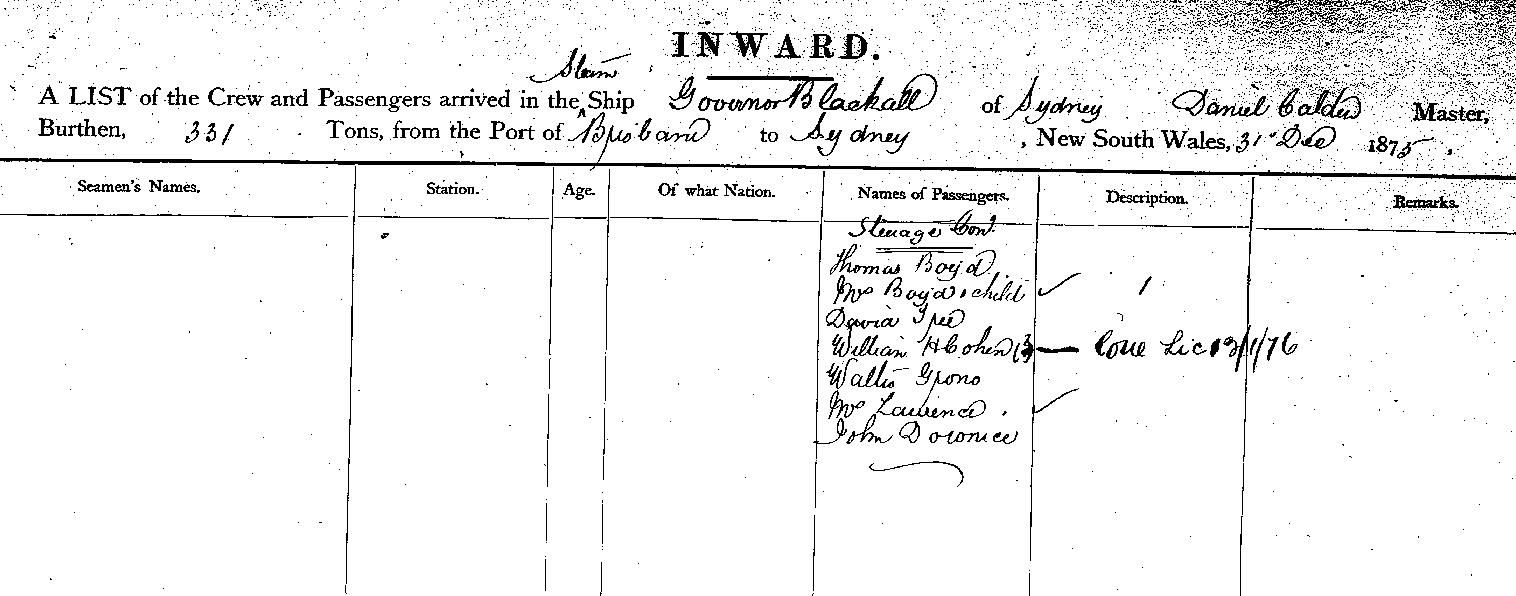 INWARD.
Steam
A LIST of the Crew and Passengers arrived in the ^ Ship Governor Blackall of Sydney Daniel Calder Master,
Burthen, 331 Tons, from the Port of Brisbane to Sydney, New South Wales, 31st Dec 1875.
Seamen's Names. Station. Age. Of what Nation. Names of Passengers. Description. Remarks.
Steerage Cont
Thomas Boyd
Mrs Boyd & child 1
David
William H Cohen (3
Mrs Lawrence
John